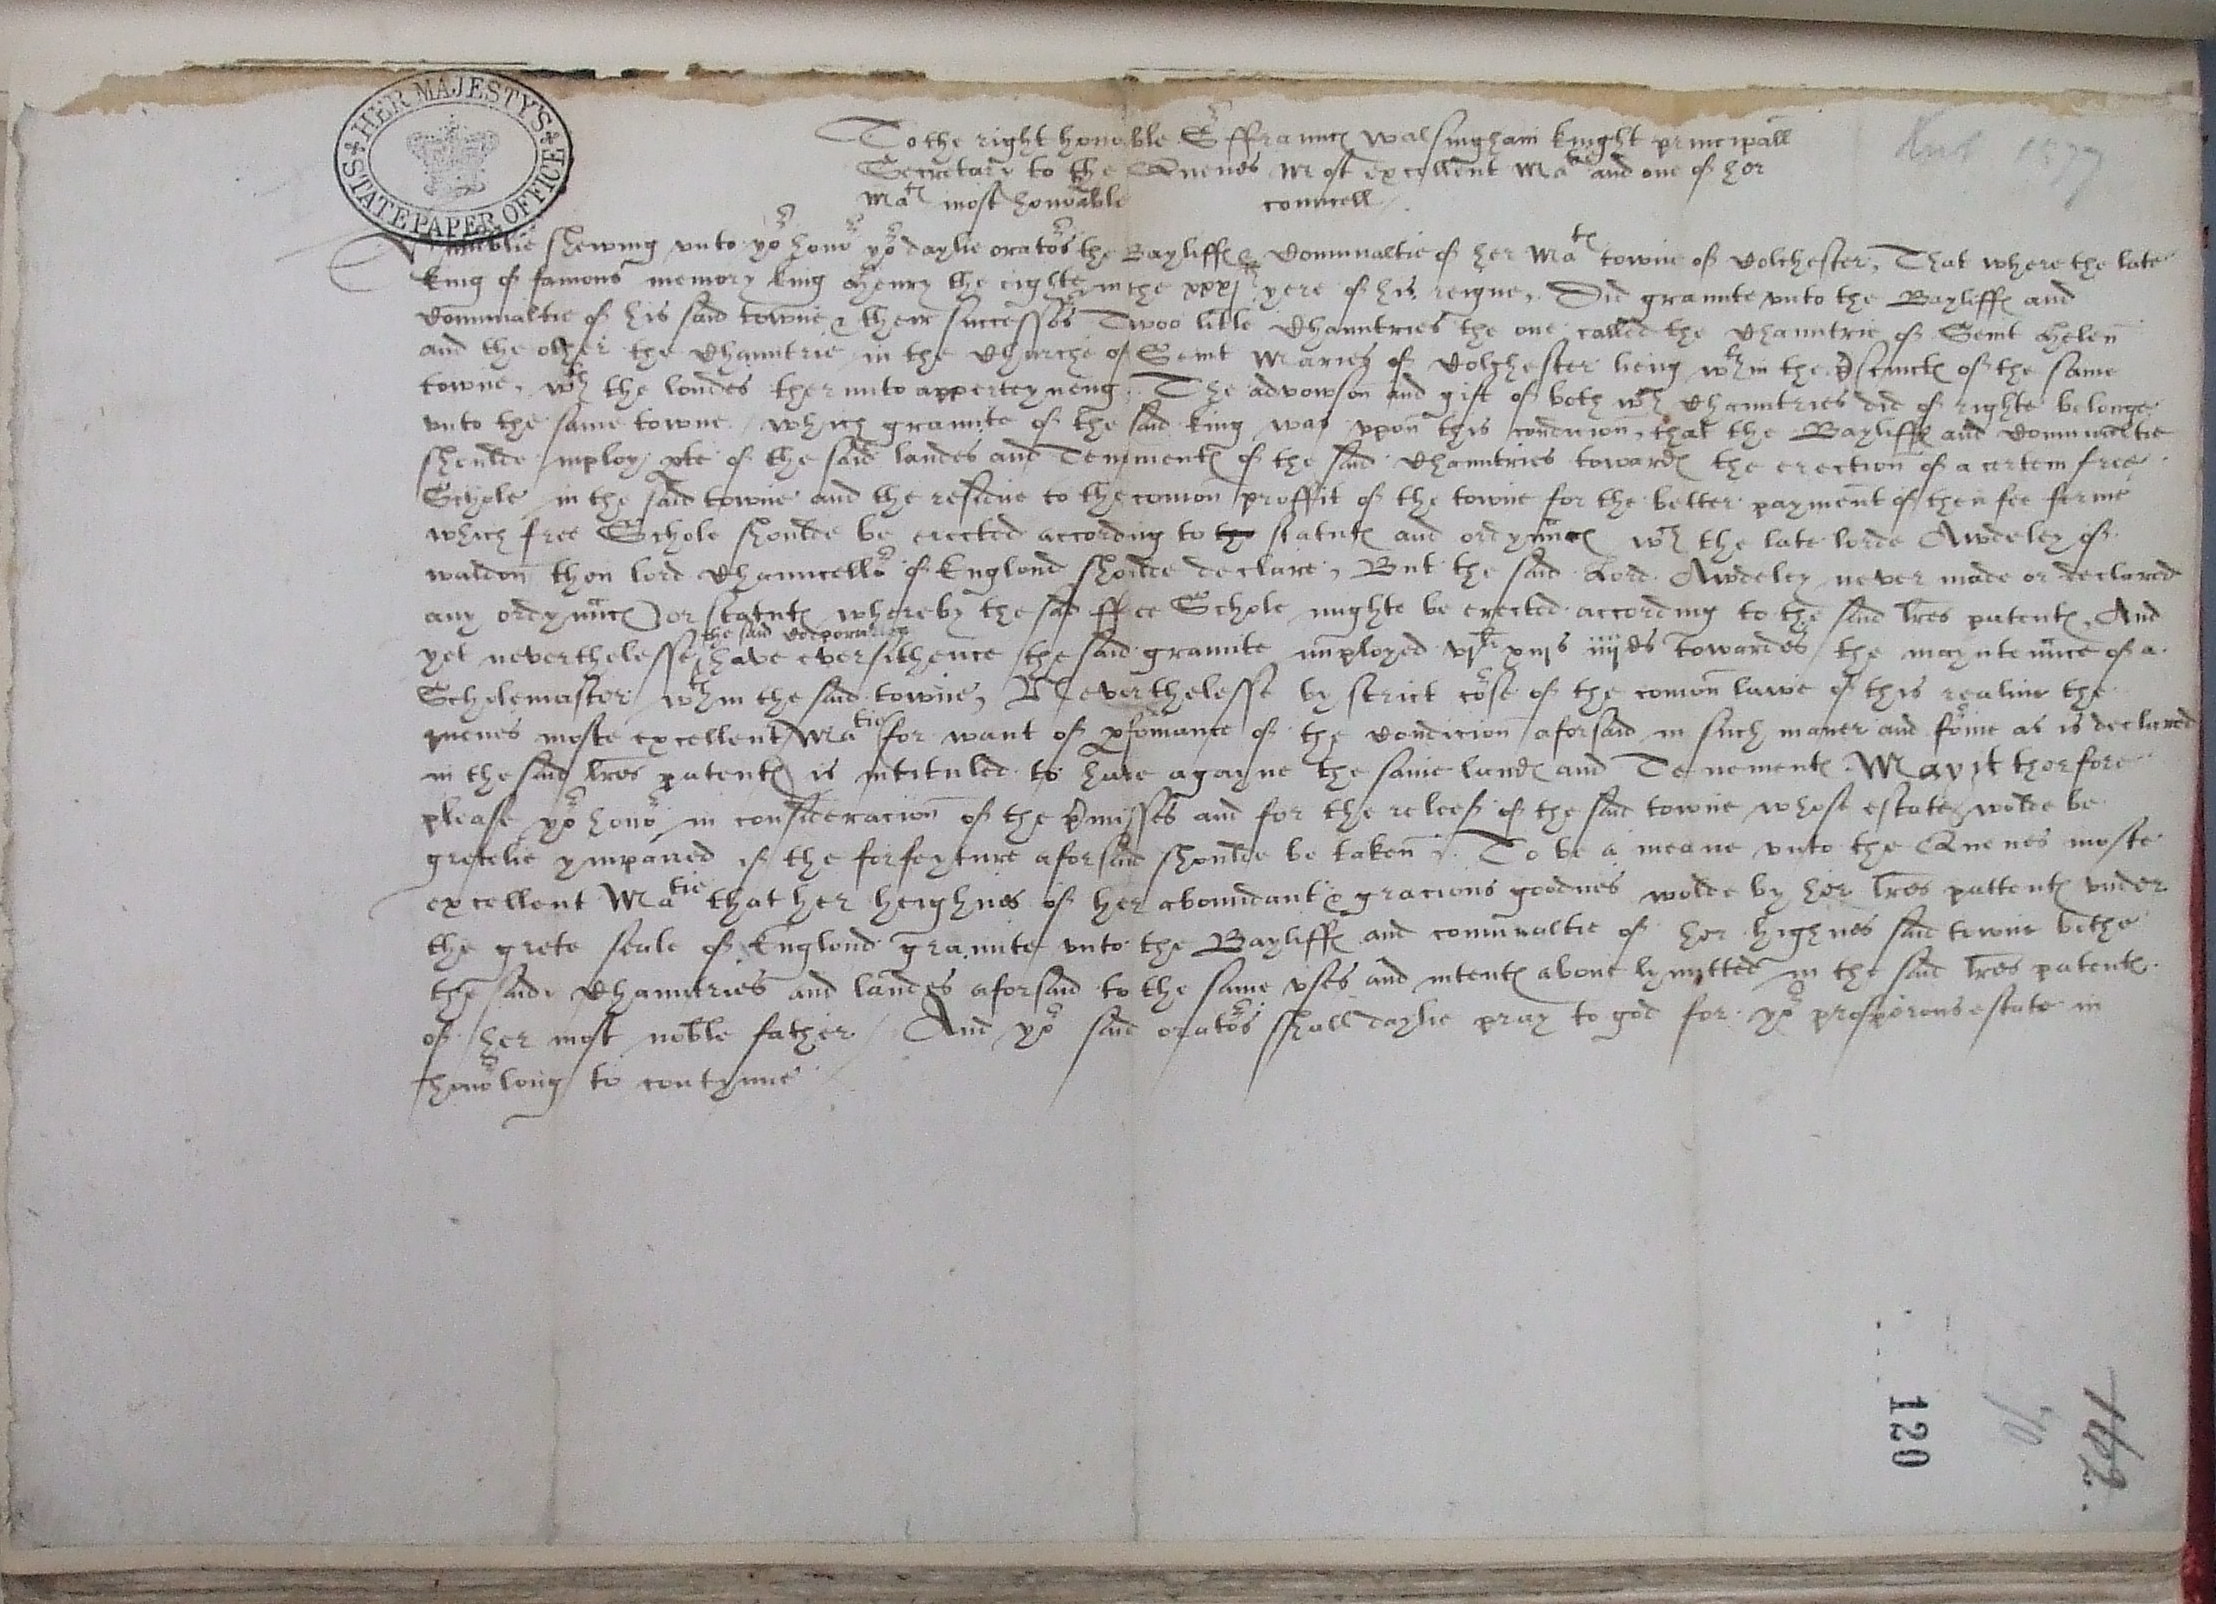 HER MAJESTY'S STATE PAPER OFFICE
To the right honable Sr ffrauncs Walsingham knyght principall
Secretary to the Quenes Most excellent Matie and one of her
Mats most honorable councell
1577
Humblie shewing unto yor honor yor daylie orators the Bayliffs & Comnaltie of her Mats towne of Colchester, That where the late
king of famous memory king Henry the eighte in the xxxj yere of his reigne, Did graunte unto the Bayliffs and
Comnaltie of his said towne & their successors Twoo litle Chauntries the one called the Chauntrie of Seint Helen
and the other the Chauntrie in the Churche of Seint Maries of Colchester lieng wthin the pcincts of the same
towne, wth the londes therunto apperteyneng. The advowson and gift of both wch Chauntries did of righte belonge
unto the same towne. which graunte of the said king was uppon this condicion, that the Bayliffs and Comnaltie
shoulde imploy pte of the said landes and Tenements of the said Chauntries towards the erection of a certein free
Schole in the said towne and the residue to the comon proffit of the towne for the better payment of their fee ferme
which free Schole shoulde be erected according to the statuts and ordynncs wch the late lorde Awdeley of
waldon then lord Chauncellor of Englond shoulde declare, But the said Lord Awdeley never made or declared
any ordynncs or statuts whereby the said ffree Schole mighte be erected according to the said lres patents, And
the said
yet neverthelesse have ever sithence the said graunte imployed vjli xiijs iiijds towardes the mayntennce of a
Scholemaster wthin the said towne, Neverthelesse by strict corse of the comon lawe of this realme the
quenes moste excellent Matie for want of pformance of the Condicion aforsaid in such maner and forme as is declared
in the said lres patents is intituled to have agayne the same lands and Tenements. May it therfore
please yor honor in consideracion of the pmisses and for the releef of the said towne whose estate wolde be
gretelie ympaired if the forfeyture aforsaid shoulde be taken. To be a meane unto the Quenes moste
excellent Matie that her heighnes of her aboundant & gracious goodnes wolde by her lres pattents under
the grete seale of Englond graunte unto the Bayliffs and comnaltie of her highnes said towne bothe
the said Chauntries and landes aforsaid to the same uses and intents above lymitted in the said lres patents
of her most noble father. And yor said orators shall daylie pray to god for yor prosperous estate in
honor long to contynue
120
70